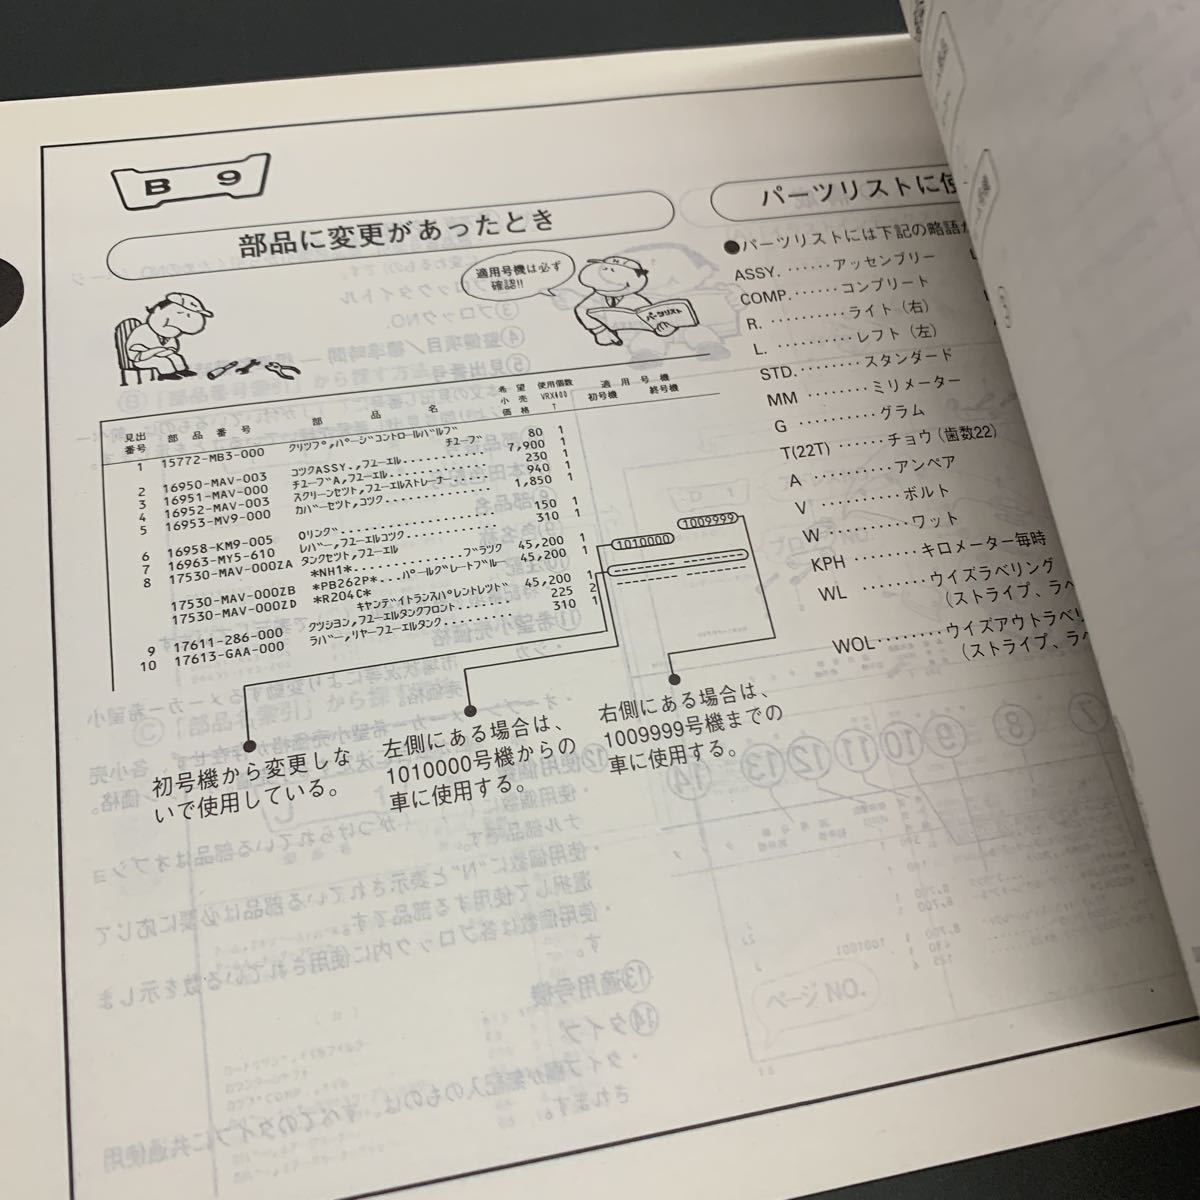 B 9
部品に変更があったとき
適用号機は必ず
確認!!
パーツリスト
見出番号 部品番号 部品名 希望小売価格 使用個数 VRX400 T 適用号機 初号機 終号機
1 15772-MB3-000 クリツプ,パージコントロールバルブ 80 1
チユーブ
2 16950-MAV-003 コツクASSY.,フユーエル 7,900 1
3 16951-MAV-000 チユーブA,フユーエル 230 1
4 16952-MAV-003 スクリーンセツト,フユーエルストレーナー 940 1
5 16953-MV9-000 カバーセツト,コツク 1,850 1
6 16958-KM9-005 Oリング 150 1
7 16963-MY5-610 レバー,フユーエルコツク 310 1
8 17530-MAV-000ZA タンクセツト,フユーエル
*NH1* ブラツク 45,200 1
17530-MAV-000ZB *PB262P* パールグレートブルー 45,200 1
17530-MAV-000ZD *R204C*
キヤンデイトランスパレントレツド 45,200 1
9 17611-286-000 クツシヨン,フユーエルタンクフロント 225 2
10 17613-GAA-000 ラバー,リヤーフユーエルタンク 310 1
1010000
1009999
初号機から変更しな
いで使用している。
左側にある場合は、
1010000号機からの
車に使用する。
右側にある場合は、
1009999号機までの
車に使用する。
パーツリストに使
●パーツリストには下記の略語が
ASSY.……アッセンブリー
COMP.……コンプリート
R.………ライト（右）
L.………レフト（左）
STD.……スタンダード
MM………ミリメーター
G…………グラム
T(22T)……チョウ（歯数22）
A…………アンペア
V…………ボルト
W…………ワット
KPH………キロメーター毎時
WL………ウイズラベリング
（ストライプ、ラベ
WOL………ウイズアウトラベリ
（ストライプ、ラベ